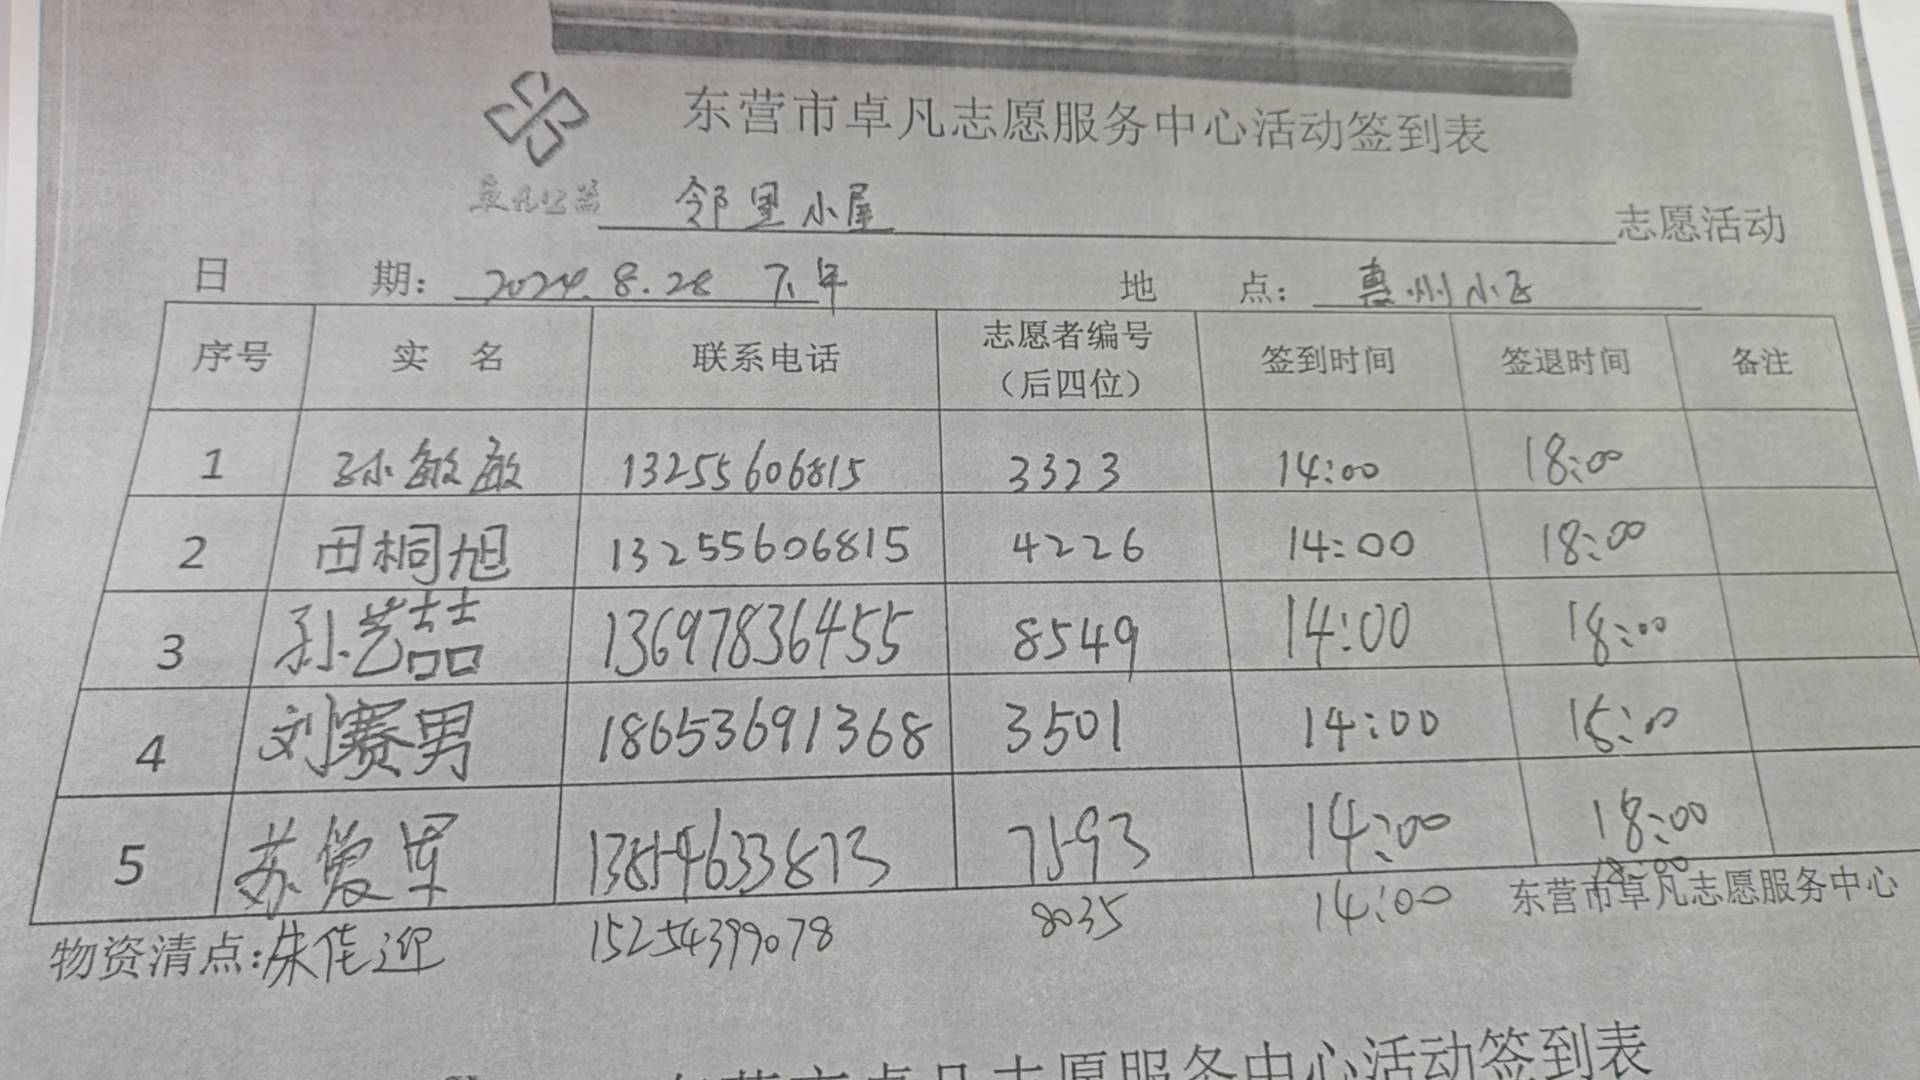 东营市卓凡志愿服务中心活动签到表
卓凡公益 邻里小屋 志愿活动
日 期: 2024.8.28 下午 地 点: 惠州小区
序号 实 名 联系电话 志愿者编号（后四位） 签到时间 签退时间 备注
1 孙敏敏 13255606815 3323 14:00 18:00
2 田桐旭 13255606815 4226 14:00 18:00
3 孙艺喆 13697836455 8549 14:00 18:00
4 刘赛男 18653691368 3501 14:00
5 苏爱军 13854633873 7593 14:00 18:00
物资清点: 朱佳迎 15254399078 8035 14:00 18:00 东营市卓凡志愿服务中心
东营市卓凡志愿服务中心活动签到表